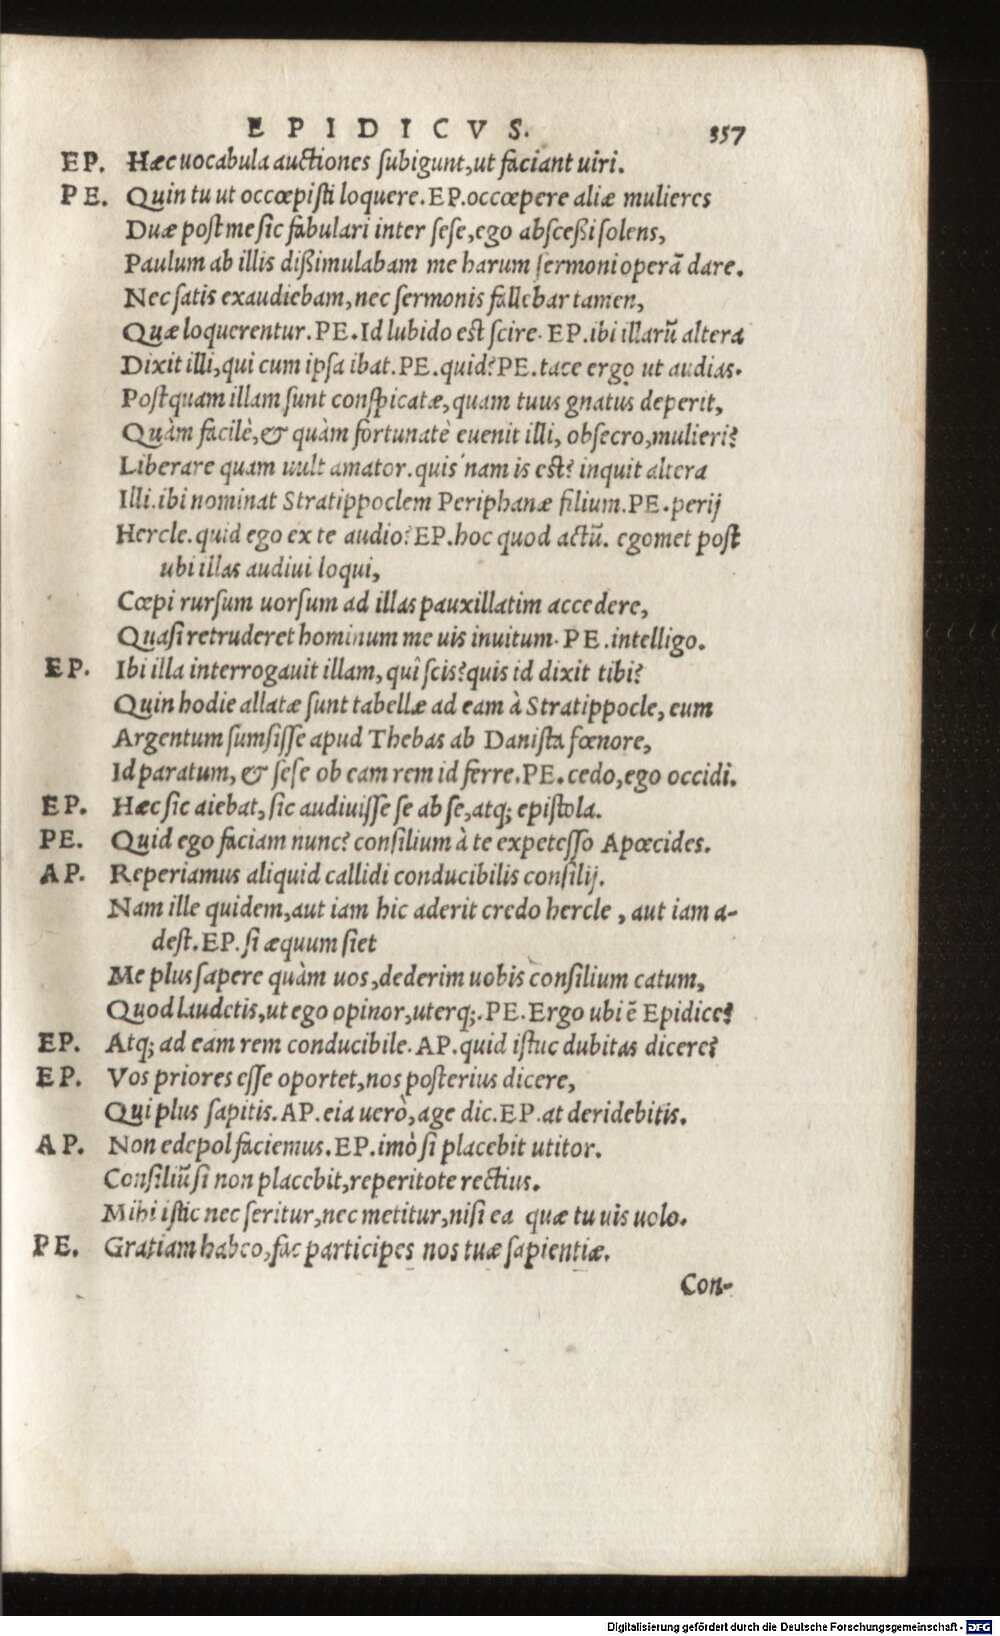 EPIDICVS. 357
EP. Hæc uocabula auctiones ſubigunt,ut faciant uiri.
PE. Quin tu ut occœpiſti loquere.EP.occœpere aliæ mulieres
Duæ poſt me ſic fabulari inter ſeſe,ego abſceßi ſolens,
Paulum ab illis dißimulabam me harum ſermoni operã dare.
Nec ſatis exaudiebam,nec ſermonis fallebar tamen,
Quæ loquerentur.PE.Id lubido eſt ſcire. EP.ibi illarũ altera
Dixit illi,qui cum ipſa ibat.PE.quid?PE.tace ergo ut audias.
Poſtquam illam ſunt conſpicatæ,quam tuus gnatus deperit,
Quàm facilè,& quàm fortunatè euenit illi, obſecro,mulieri?
Liberare quam uult amator.quis nam is eſt? inquit altera
Illi.ibi nominat Stratippoclem Periphanæ filium.PE.perij
Hercle.quid ego ex te audio?EP.hoc quod actũ. egomet poſt
ubi illas audiui loqui,
Cœpi rurſum uorſum ad illas pauxillatim accedere,
Quaſi retruderet hominum me uis inuitum. PE.intelligo.
EP. Ibi illa interrogauit illam,quî ſcis?quis id dixit tibi?
Quin hodie allatæ ſunt tabellæ ad eam à Stratippocle, eum
Argentum ſumſiſſe apud Thebas ab Daniſta fœnore,
Id paratum, & ſeſe ob eam rem id ferre.PE.cedo,ego occidi.
EP. Hæc ſic aiebat,ſic audiuiſſe ſe ab ſe,atq; epiſtola.
PE. Quid ego faciam nunc? conſilium à te expeteſſo Apœcides.
AP. Reperiamus aliquid callidi conducibilis conſilij.
Nam ille quidem,aut iam hic aderit credo hercle , aut iam a-
deſt.EP.ſi æquum ſiet
Me plus ſapere quàm uos,dederim uobis conſilium catum,
Quod laudetis,ut ego opinor,uterq;.PE.Ergo ubi ẽ Epidice?
EP. Atq; ad eam rem conducibile.AP.quid iſtuc dubitas dicere?
EP. Vos priores eſſe oportet,nos poſterius dicere,
Qui plus ſapitis.AP.eia uerò,age dic.EP.at deridebitis.
AP. Non edepol faciemus.EP.imò ſi placebit utitor.
Conſiliũ ſi non placebit,reperitote rectius.
Mihi iſtic nec ſeritur,nec metitur,niſi ea quæ tu uis uolo.
PE. Gratiam habeo,fac participes nos tuæ ſapientiæ.
Con-
Digitalisierung gefördert durch die Deutsche Forschungsgemeinschaft - DFG